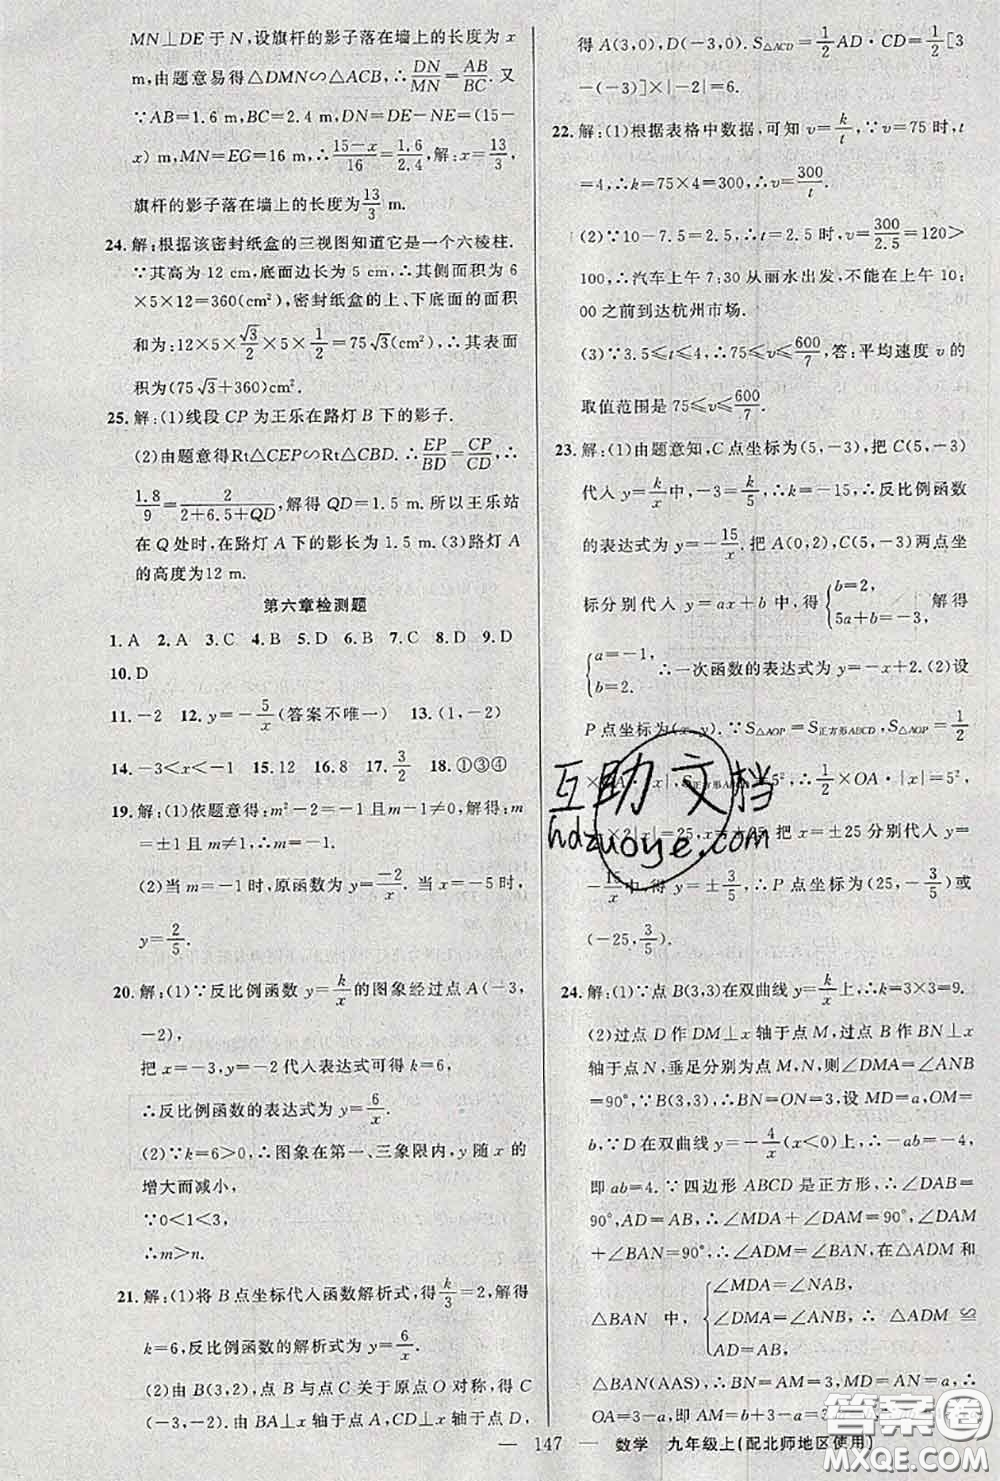 MN⊥DE于N,设旗杆的影子落在墙上的长度为x
m,由题意易得△DMN∽△ACB,∴DN/MN=AB/BC.又
∵AB=1.6 m,BC=2.4 m,DN=DE-NE=(15-
x) m,MN=EG=16 m,∴(15-x)/16=1.6/2.4,解:x=13/3,
旗杆的影子落在墙上的长度为13/3 m.
24.解:根据该密封纸盒的三视图知道它是一个六棱柱.
∵其高为12 cm,底面边长为5 cm,∴其侧面积为6
×5×12=360(cm²),密封纸盒的上、下底面的面积
和为:12×5×√3/2×5×1/2=75√3(cm²),∴其表面
积为(75√3+360)cm².
25.解:(1)线段CP为王乐在路灯B下的影子.
(2)由题意得Rt△CEP∽Rt△CBD.∴EP/BD=CP/CD,∴
1.8/9=2/(2+6.5+QD),解得QD=1.5 m.所以王乐站
在Q处时,在路灯A下的影长为1.5 m.(3)路灯A
的高度为12 m.
第六章检测题
1.A 2.A 3.C 4.B 5.D 6.B 7.C 8.D 9.D
10.D
11.-2 12.y=-5/x(答案不唯一) 13.(1,-2)
14.-3<x<-1 15.12 16.8 17.3/2 18.①③④
19.解:(1)依题意得:m²-2=-1且m-1≠0 解得:m=
±1且m≠1,∴m=-1.
(2)当m=-1时,原函数为y=-2/x.当x=-5时,
y=2/5.
20.解:(1)∵反比例函数y=k/x的图象经过点A(-3,
-2),
把x=-3,y=-2代入表达式可得k=6,
∴反比例函数的表达式为y=6/x.
(2)∵k=6>0,∴图象在第一、三象限内,y随x的
增大而减小,
∵0<1<3,
∴m>n.
21.解:(1)将B点坐标代入函数解析式,得k/3=2,解得
k=6,反比例函数的解析式为y=6/x.
(2)由B(3,2),点B与点C关于原点O对称,得C
(-3,-2).由BA⊥x轴于点A,CD⊥x轴于点D,
得A(3,0),D(-3,0).S△ACD=1/2AD·CD=1/2[3
-(-3)]×|-2|=6.
22.解:(1)根据表格中数据,可知v=k/t,∵v=75时,t
=4,∴k=75×4=300,∴v=300/t.
(2)∵10-7.5=2.5,∴t=2.5时,v=300/2.5=120>
100,∴汽车上午7:30从丽水出发,不能在上午10:
00之前到达杭州市场.
(3)∵3.5≤t≤4,∴75≤v≤600/7,答:平均速度v的
取值范围是75≤v≤600/7.
23.解:(1)由题意知,C点坐标为(5,-3),把C(5,-3)
代入y=k/x中,-3=k/5,∴k=-15,∴反比例函数
的表达式为y=-15/x.把A(0,2),C(5,-3)两点坐
标分别代入y=ax+b中,得{b=2, 5a+b=-3 解得
{a=-1, b=2. ∴一次函数的表达式为y=-x+2.(2)设
P点坐标为(x,y).∵S△AOP=S正方形ABCD,S△AOP=1/2
×OA·|x|,S正方形ABCD=5²,∴1/2×OA·|x|=5²,
×2|x|=25,x=±25.把x=±25分别代入y=
-15/x中,得y=±3/5,∴P点坐标为(25,-3/5)或
(-25,3/5).
24.解:(1)∵点B(3,3)在双曲线y=k/x上,∴k=3×3=9.
(2)过点D作DM⊥x轴于点M,过点B作BN⊥x
轴于点N,垂足分别为点M,N,则∠DMA=∠ANB=
90°,∵B(3,3),∴BN=ON=3,设MD=a,OM=
b,∵D在双曲线y=-4/x(x<0)上,∴-ab=-4,
即ab=4.∵四边形ABCD是正方形,∴∠DAB=
90°,AD=AB,∴∠MDA+∠DAM=90°,∠DAM
+∠BAN=90°,∴∠MDA=∠BAN,在△ADM和
△BAN中,{∠MDA=∠NAB, ∠DMA=∠ANB, AD=AB, ∴△ADM≌
△BAN(AAS),∴BN=AM=3,MD=AN=a,∴
OA=3-a,
互助文档
hdzuoye.com
答案卷
— 147 — 数学 九年级上(配北师地区使用)